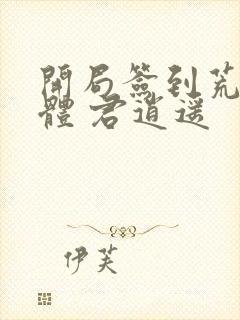 開局簽到荒
體 君逍遙
伊芙